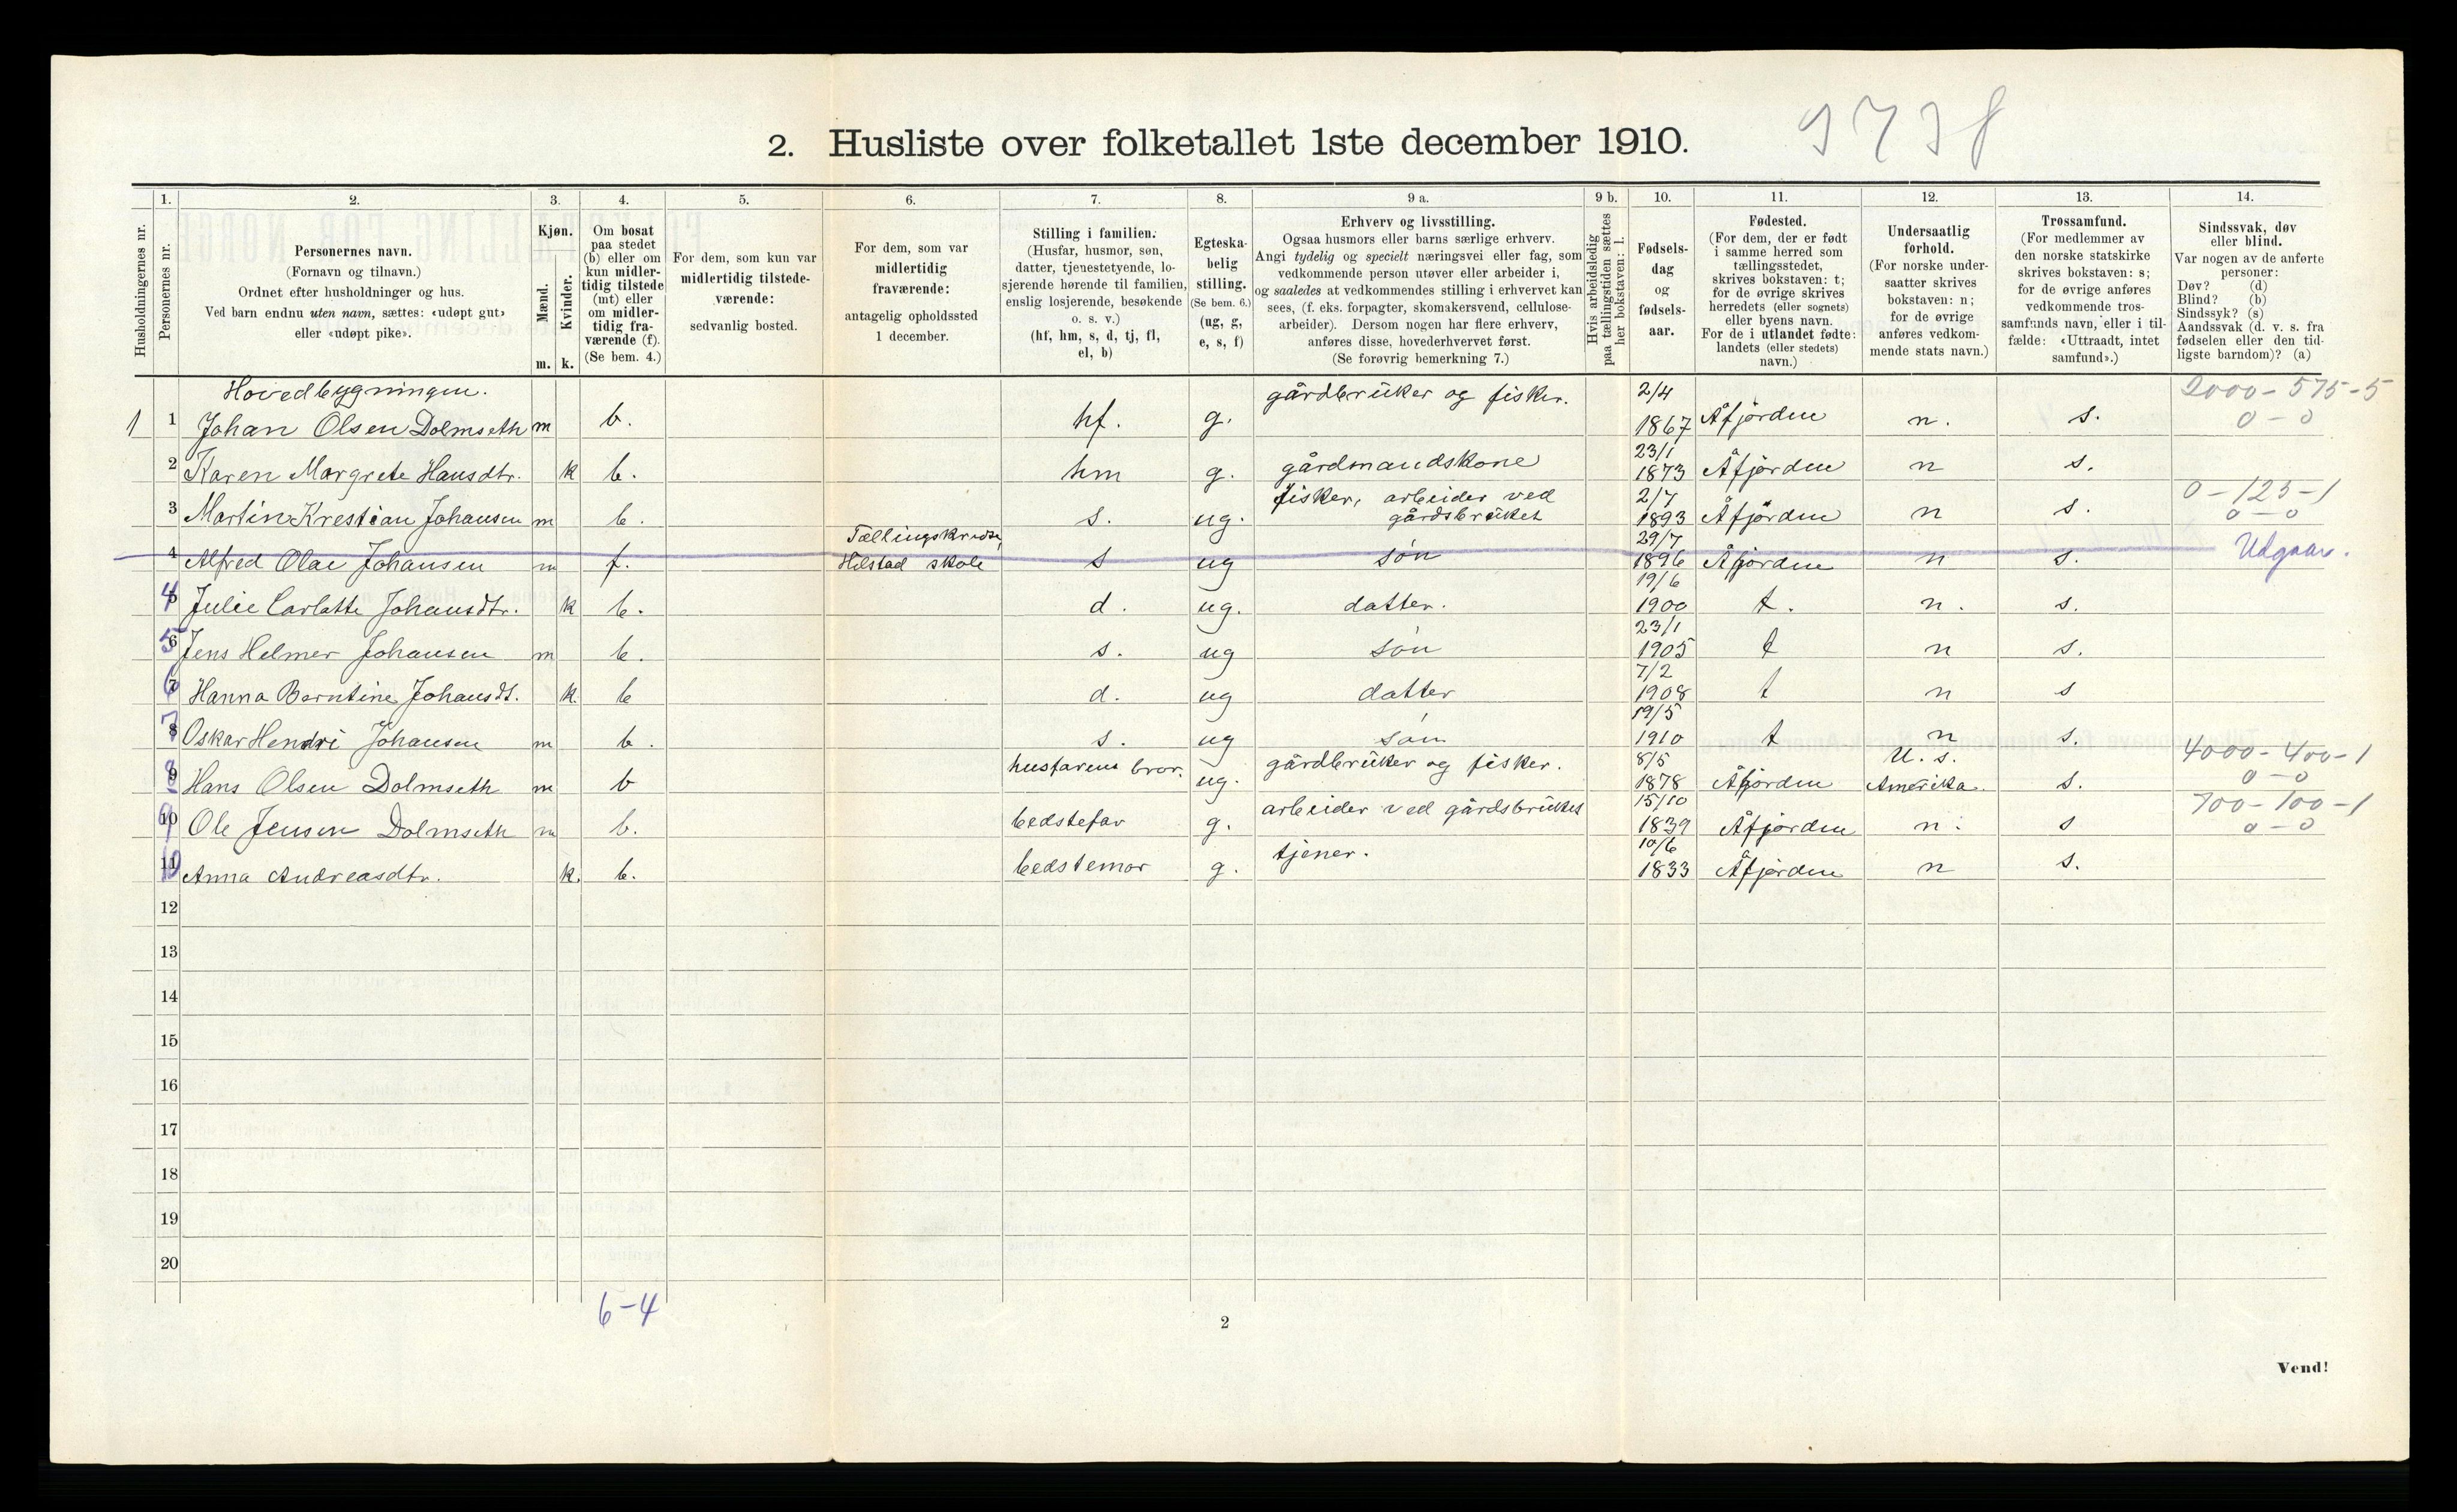 9738
2. Husliste over folketallet 1ste december 1910.
Husholdningernes nr.
1.
Personernes nr.
2.
Personernes navn.
(Fornavn og tilnavn.)
Ordnet efter husholdninger og hus.
Ved barn endnu uten navn, sættes: «udøpt gut»
eller «udøpt pike».
3.
Kjøn.
Mænd.
Kvinder.
m. k.
4.
Om bosat
paa stedet
(b) eller om
kun midler-
tidig tilstede
(mt) eller
om midler-
tidig fra-
værende (f).
(Se bem. 4.)
5.
For dem, som kun var
midlertidig tilstede-
værende:
sedvanlig bosted.
6.
For dem, som var
midlertidig
fraværende:
antagelig opholdssted
1 december.
7.
Stilling i familien.
(Husfar, husmor, søn,
datter, tjenestetyende, lo-
sjerende hørende til familien,
enslig losjerende, besøkende
o. s. v.)
(hf, hm, s, d, tj, fl,
el, b)
8.
Egteska-
belig
stilling.
(Se bem. 6.)
(ug, g,
e, s, f)
9 a.
Erhverv og livsstilling.
Ogsaa husmors eller barns særlige erhverv.
Angi tydelig og specielt næringsvei eller fag, som
vedkommende person utøver eller arbeider i,
og saaledes at vedkommendes stilling i erhvervet kan
sees, (f. eks. forpagter, skomakersvend, cellulose-
arbeider). Dersom nogen har flere erhverv,
anføres disse, hovederhvervet først.
(Se forøvrig bemerkning 7.)
9 b.
Hvis arbeidsledig
paa tællingstiden sættes
her bokstaven: l.
10.
Fødsels-
dag
og
fødsels-
aar.
11.
Fødested.
(For dem, der er født
i samme herred som
tællingsstedet,
skrives bokstaven: t;
for de øvrige skrives
herredets (eller sognets)
eller byens navn.
For de i utlandet fødte:
landets (eller stedets)
navn.)
12.
Undersaatlig
forhold.
(For norske under-
saatter skrives
bokstaven: n;
for de øvrige
anføres vedkom-
mende stats navn.)
13.
Trossamfund.
(For medlemmer av
den norske statskirke
skrives bokstaven: s;
for de øvrige anføres
vedkommende tros-
samfunds navn, eller i til-
fælde: «Uttraadt, intet
samfund».)
14.
Sindssvak, døv
eller blind.
Var nogen av de anførte
personer:
Døv? (d)
Blind? (b)
Sindssyk? (s)
Aandssvak (d. v. s. fra
fødselen eller den tid-
ligste barndom)? (a)
Hovedbygningen. gårdbrüker og fisker. 2/4 2000-575-5
1 1 Johan Olsen Dolmseth m b. hf. g. 1867 Åfjorden n. s. 0-0
23/1
2 Karen Margrete Hansdtr. k b. hm g. gårdmandskone 1873 Åfjorden n s.
fisker, arbeider ved 2/7 0-125-1
3 Martin Krestian Johansen m b. s. ug. gårdsbrüket 1893 Åfjorden n s. 0-0
Tællingskreds, 29/7
4 Alfred Olai Johansen m f. Hilstad skole s ug søn 1896 Åfjorden n s. Udgaar.
19/6
4 5 Julie Carlotte Johansdtr. k b. d. ug. datter. 1900 t. n. s.
23/1
5 6 Jens Helmer Johansen m b. s. ug søn 1905 t n s.
7/2
6 7 Hanna Berntine Johansdt. k. b d. ug datter 1908 t n s
19/5
7 8 Oskar Hendri Johansen m b. s. ug søn 1910 t n s.
husfarens bror. gårdbrüker og fisker. 8/5 U. s. 4000-400-1
8 9 Hans Olsen Dolmseth m b ug. 1878 Åfjorden Amerika. s. 0-0
arbeider ved gårdsbrüket 15/10 700-100-1
9 10 Ole Jensen Dolmseth m b. bedstefar g. 1839 Åfjorden n. s 0-0
tjener. 10/6
10 11 Anna Andreasdtr. k. b. bedstemor g. 1833 Åfjorden n s.
12
13
14
15
16
17
18
19
20
6-4
2
Vend!